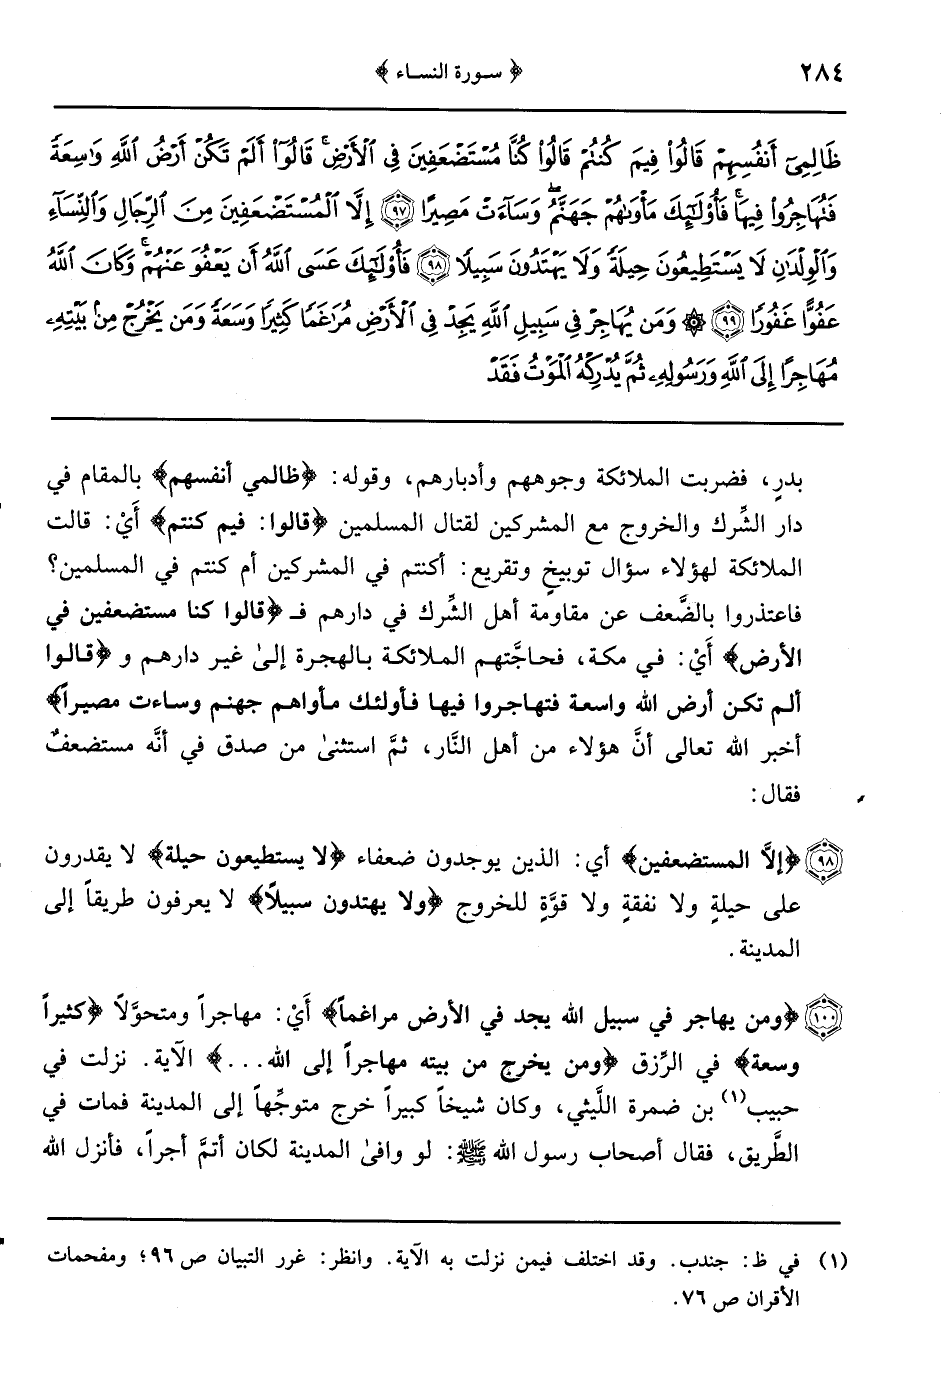 ٢٨٤ ﴿ سورة النساء ﴾
ظَالِمِىٓ أَنفُسِهِمْ قَالُوا۟ فِيمَ كُنتُمْ قَالُوا۟ كُنَّا مُسْتَضْعَفِينَ فِى ٱلْأَرْضِ ۚ قَالُوٓا۟ أَلَمْ تَكُنْ أَرْضُ ٱللَّهِ وَٰسِعَةً
فَتُهَاجِرُوا۟ فِيهَا ۚ فَأُو۟لَـٰٓئِكَ مَأْوَىٰهُمْ جَهَنَّمُ ۖ وَسَآءَتْ مَصِيرًا ﴿٩٧﴾ إِلَّا ٱلْمُسْتَضْعَفِينَ مِنَ ٱلرِّجَالِ وَٱلنِّسَآءِ
وَٱلْوِلْدَٰنِ لَا يَسْتَطِيعُونَ حِيلَةً وَلَا يَهْتَدُونَ سَبِيلًا ﴿٩٨﴾ فَأُو۟لَـٰٓئِكَ عَسَى ٱللَّهُ أَن يَعْفُوَ عَنْهُمْ ۚ وَكَانَ ٱللَّهُ
عَفُوًّا غَفُورًا ﴿٩٩﴾ ۞ وَمَن يُهَاجِرْ فِى سَبِيلِ ٱللَّهِ يَجِدْ فِى ٱلْأَرْضِ مُرَٰغَمًا كَثِيرًا وَسَعَةً وَمَن يَخْرُجْ مِنۢ بَيْتِهِۦ
مُهَاجِرًا إِلَى ٱللَّهِ وَرَسُولِهِۦ ثُمَّ يُدْرِكْهُ ٱلْمَوْتُ فَقَدْ
بدرٍ، فضربت الملائكة وجوههم وأدبارهم، وقوله: ﴿ظالمي أنفسهم﴾ بالمقام في
دار الشِّرك والخروج مع المشركين لقتال المسلمين ﴿قالوا: فيم كنتم﴾ أَيْ: قالت
الملائكة لهؤلاء سؤال توبيخٍ وتقريع: أكنتم في المشركين أم كنتم في المسلمين؟
فاعتذروا بالضَّعف عن مقاومة أهل الشِّرك في دارهم فـ ﴿قالوا كنا مستضعفين في
الأرض﴾ أَيْ: في مكة، فحاجَّتهم الملائكة بالهجرة إلىٰ غير دارهم و ﴿قالوا
ألم تكن أرض الله واسعة فتهاجروا فيها فأولئك مأواهم جهنم وساءت مصيراً﴾
أخبر الله تعالى أنَّ هؤلاء من أهل النَّار، ثمَّ استثنىٰ من صدق في أنَّه مستضعفٌ
فقال:
﴿٩٨﴾ ﴿إلاَّ المستضعفين﴾ أي: الذين يوجدون ضعفاء ﴿لا يستطيعون حيلة﴾ لا يقدرون
على حيلةٍ ولا نفقةٍ ولا قوَّةٍ للخروج ﴿ولا يهتدون سبيلاً﴾ لا يعرفون طريقاً إلى
المدينة.
﴿١٠٠﴾ ﴿ومن يهاجر في سبيل الله يجد في الأرض مراغماً﴾ أَيْ: مهاجراً ومتحوَّلاً ﴿كثيراً
وسعة﴾ في الرِّزق ﴿ومن يخرج من بيته مهاجراً إلى الله...﴾ الآية. نزلت في
حبيب(١) بن ضمرة اللَّيثي، وكان شيخاً كبيراً خرج متوجِّهاً إلى المدينة فمات في
الطَّريق، فقال أصحاب رسول الله ﷺ: لو وافىٰ المدينة لكان أتمَّ أجراً، فأنزل الله
(١) في ظ: جندب. وقد اختلف فيمن نزلت به الآية. وانظر: غرر التبيان ص ٩٦؛ ومفحمات
الأقران ص ٧٦.